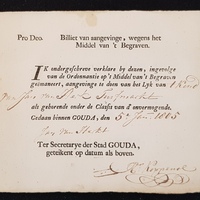 Pro Deo. Billiet van aangevinge, wegens het
Middel van 't Begraven.
IK ondergeschreve verklare by dezen, ingevolge
van de Ordonnantie op 't Middel van 't Begraven
geëmaneert, aangevinge te doen van het Lyk van 1 Kind
van
als gehorende onder de Classis van d'onvermogende.
Gedaan binnen GOUDA, den 5 1805
Jan van
Ter Secretarye der Stad GOUDA,
geteikent op datum als boven.